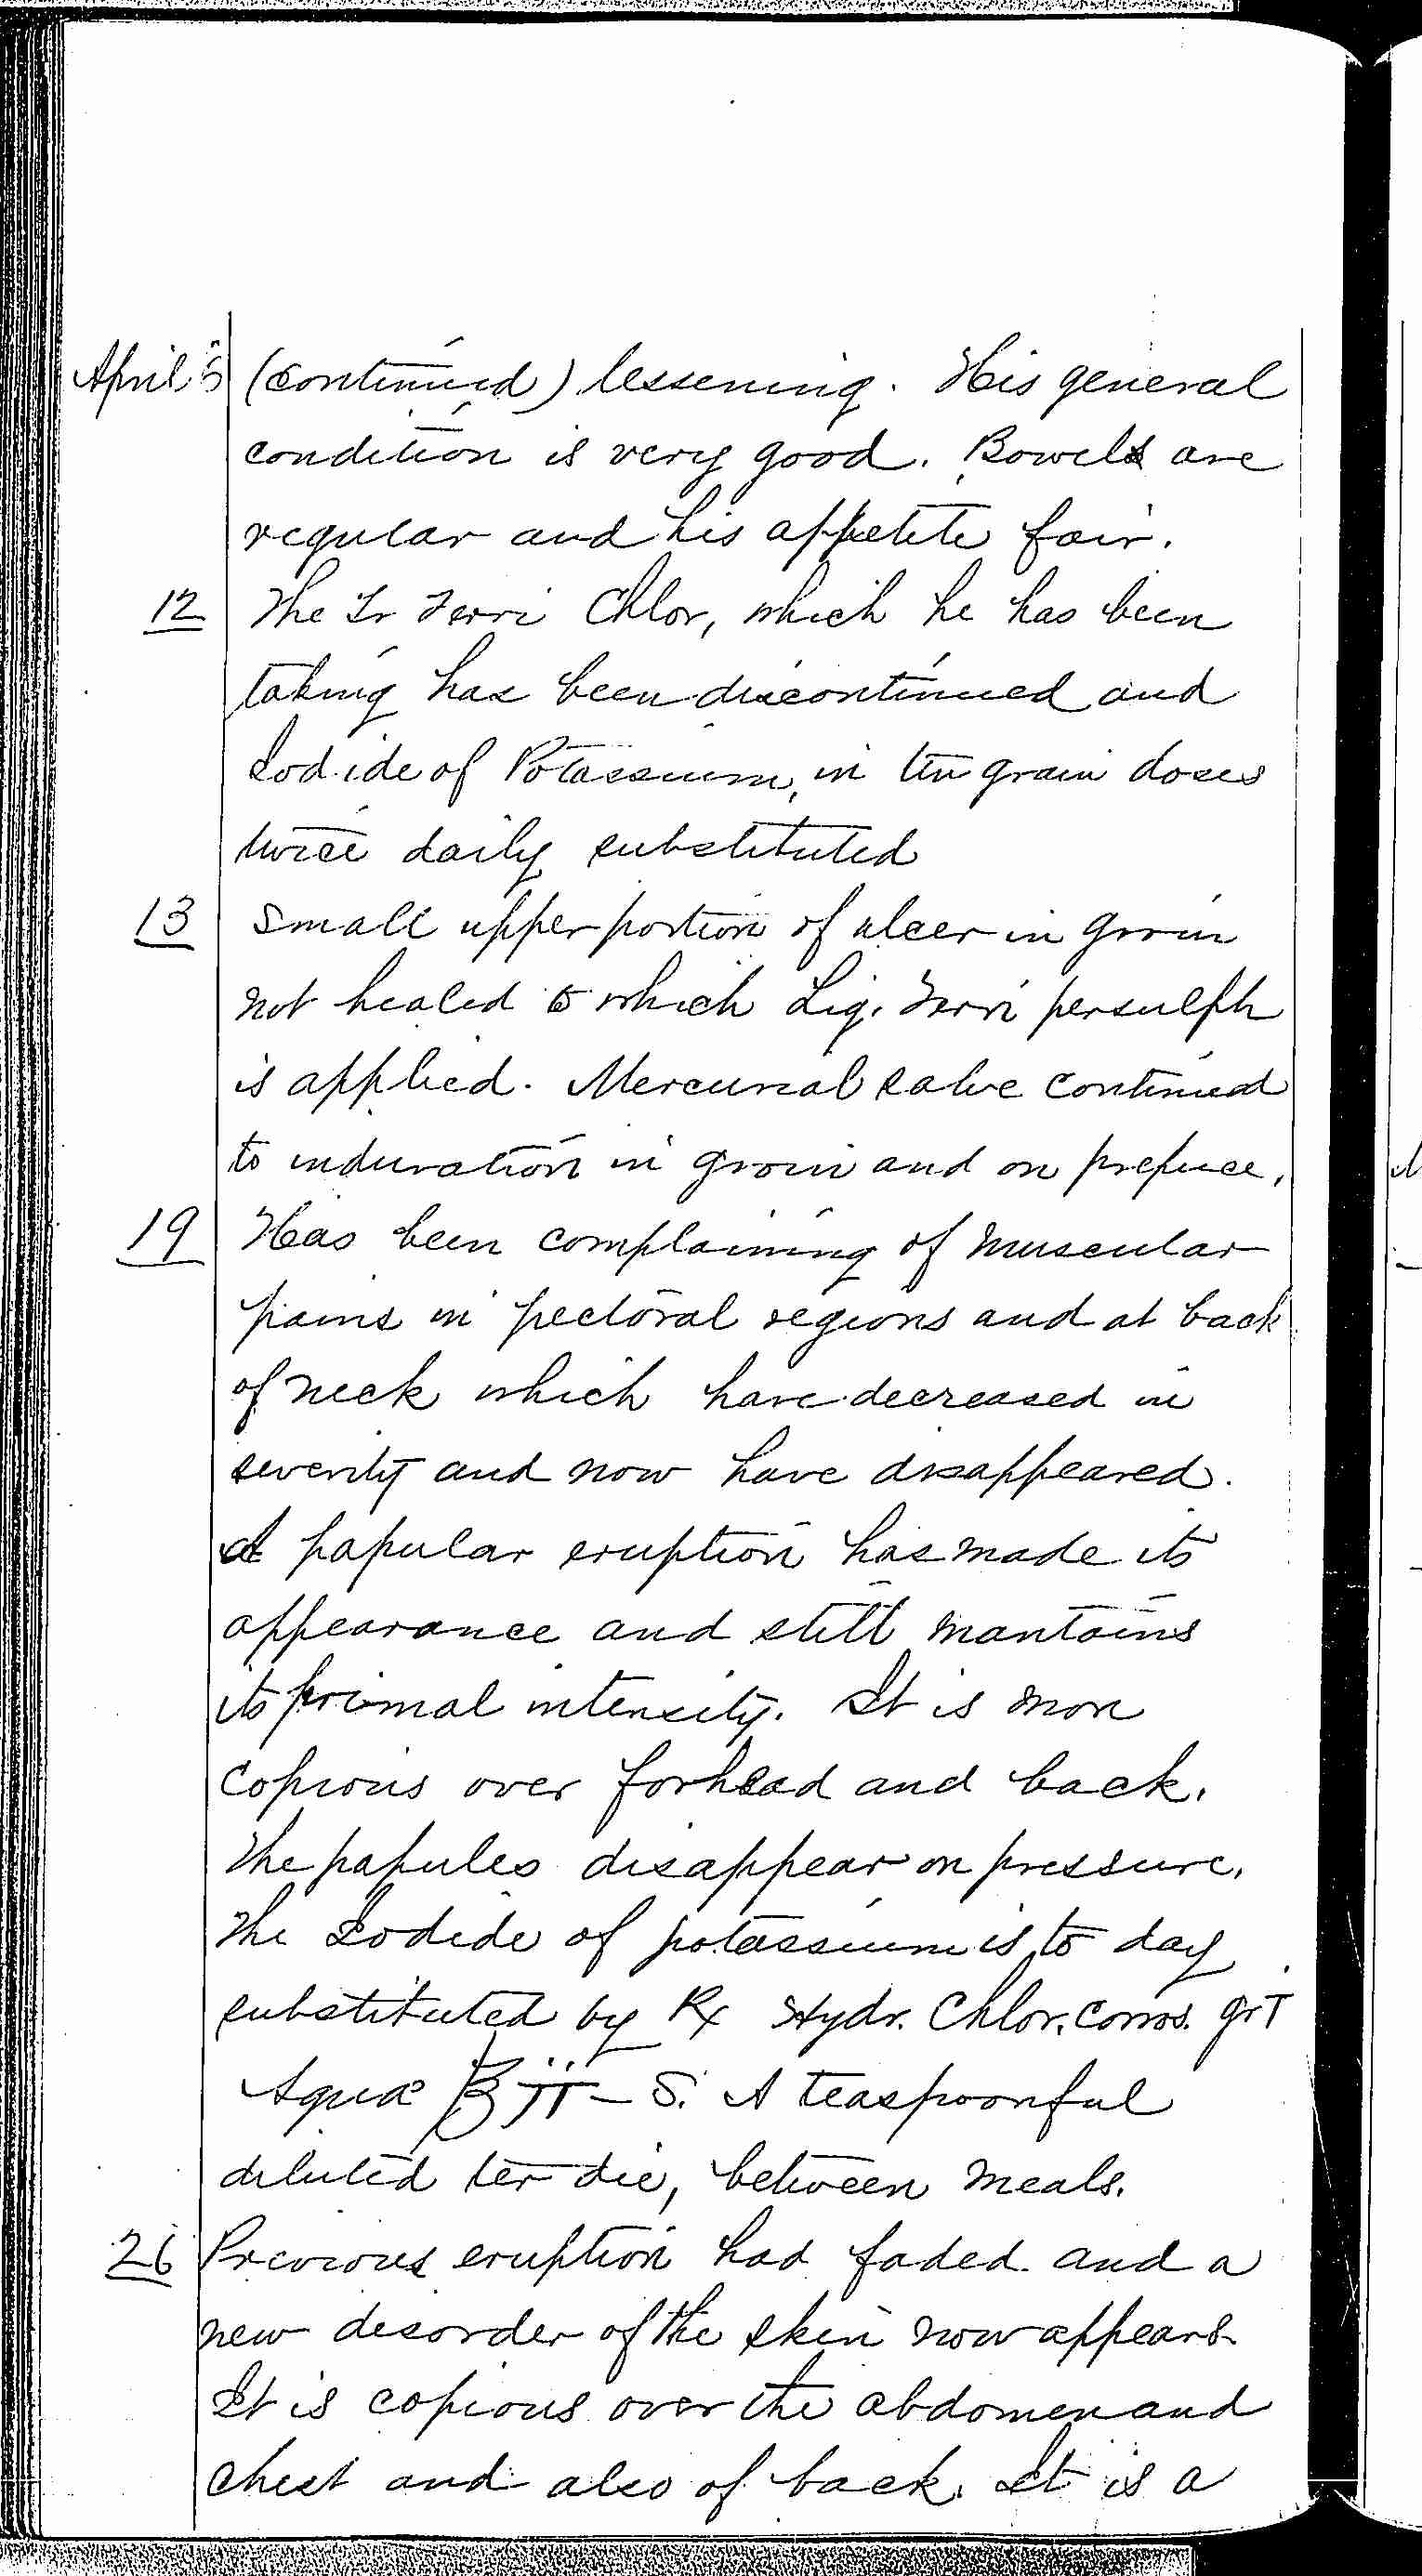 April 5 (continued) lessening. His general
condition is very good. Bowels are
regular and his appetite fair.
12 The Tr Ferri Chlor, which he has been
taking has been discontinued and
Iodide of Potassium, in ten grain doses
twice daily substituted
13 Small upper portion of ulcer in groin
not healed to which Liq. Ferri persulph
is applied. Mercurial salve continued
to induration in groin and on prepuce.
19 Has been complaining of muscular
pains in pectoral regions and at back
of neck which have decreased in
severity and now have disappeared.
A papular eruption has made its
appearance and still mantains
its primal intensity. It is more
copious over forhead and back.
The papules disappear on pressure.
The Iodide of potassium is to day
substituted by Rx Hydr. Chlor. Corros. gr T
Aquæ ℥ ij - S. A teaspoonful
diluted ter die, between meals.
26 Previous eruption had faded and a
new disorder of the skin now appears.
It is copious over the abdomen and
chest and also of back. It is a